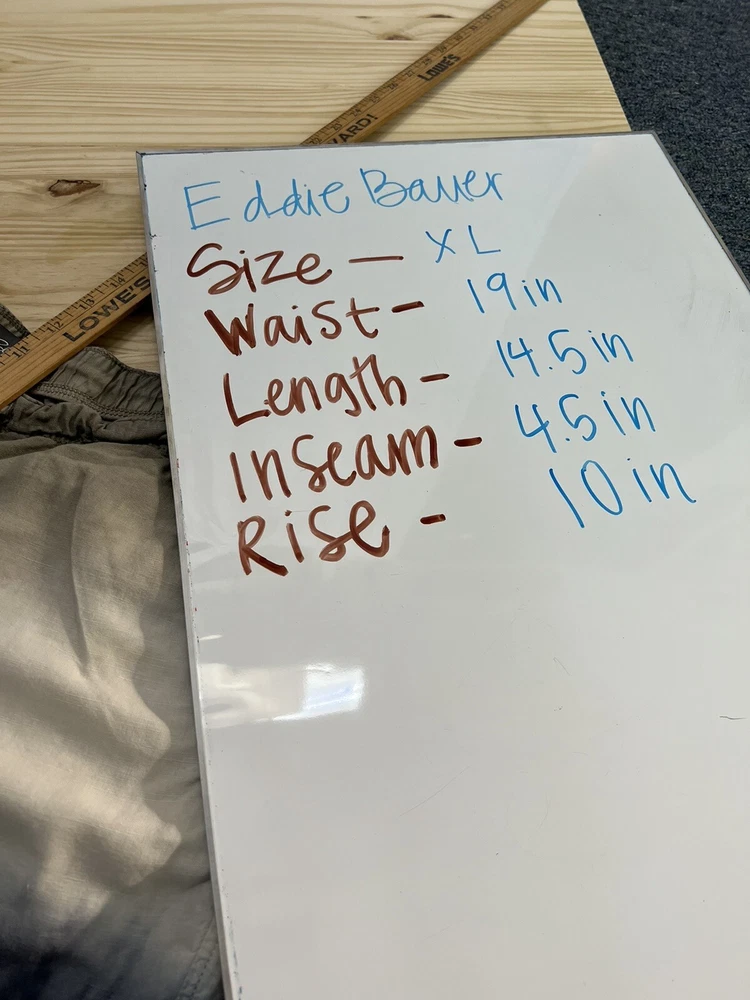 Eddie Bauer
Size — XL
Waist - 19in
Length - 14.5in
Inseam - 4.5in
Rise - 10in
LOWE'S
YARD!
LOWE'S